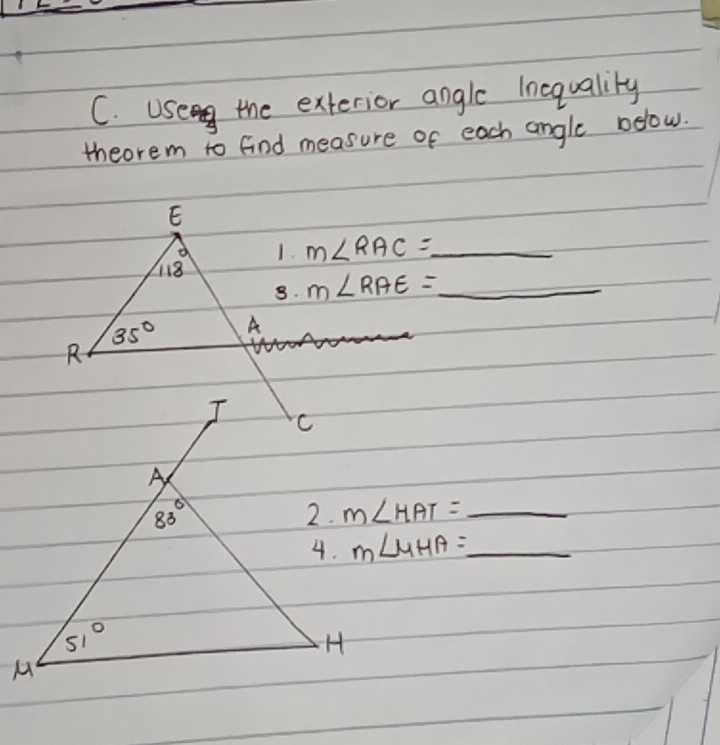 C. Useng the exterior angle Inequality
theorem to find measure of each angle below.
E
118°
1. m∠RAC =
3. m∠RAE =
35°
A
R
C
T
A
83°
2. m∠HAT =
4. m∠MHA =
51°
M
H